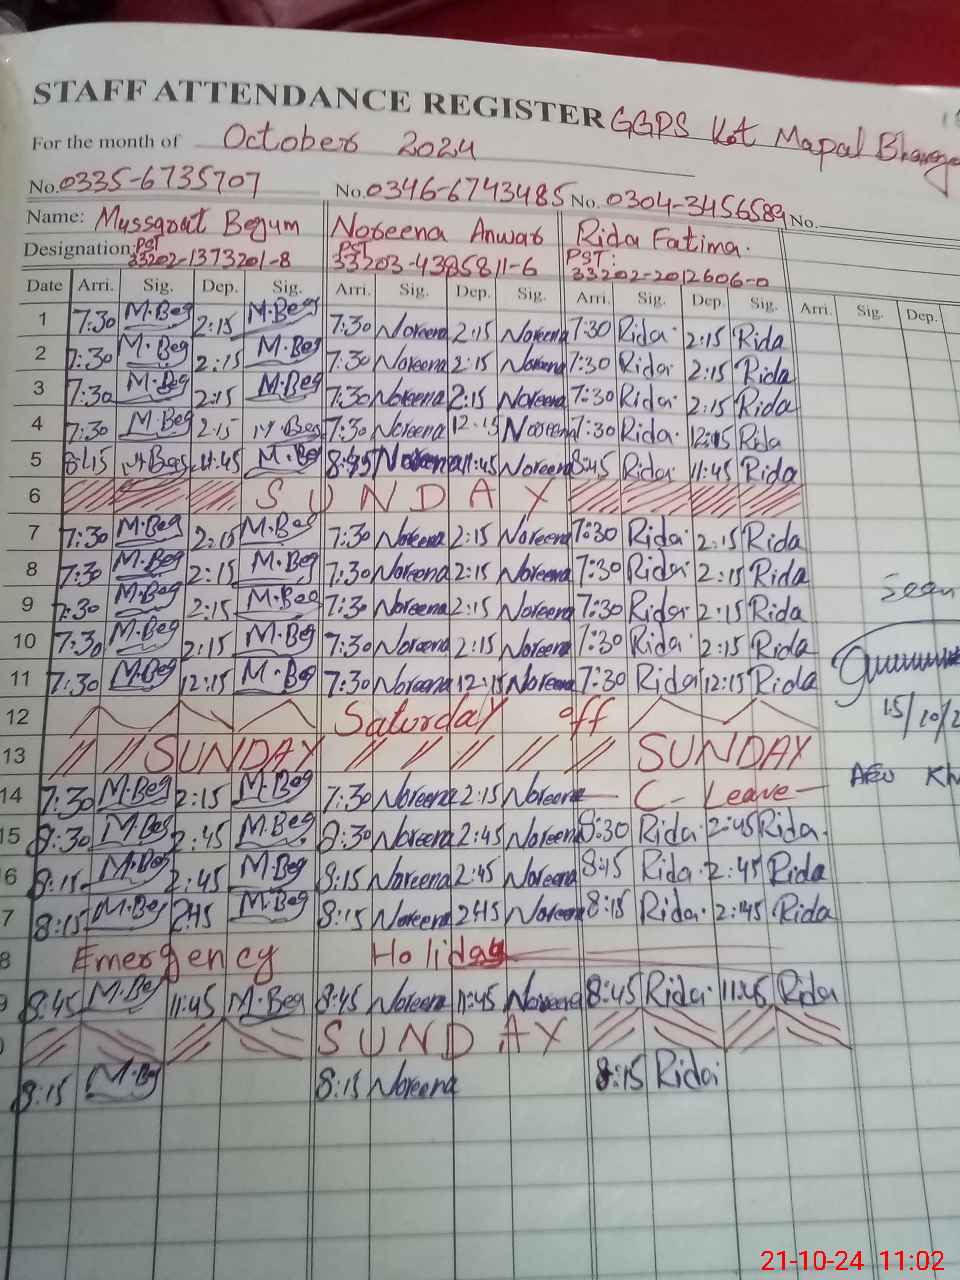 STAFF ATTENDANCE REGISTER GGPS Kot Mapal
For the month of October 2024
No. 0335-6735707 No. 0346-6743485 No. 0304-3456589 No.
Name: Mussarat Begum Noreena Anwar Rida Fatima.
Designation: PST PST PST:
33202-1373201-8 33203-4385811-6 33202-2012606-0
Date Arri. Sig. Dep. Sig. Arri. Sig. Dep. Sig. Arri. Sig. Dep. Sig. Arri. Sig. Dep.
1 7:30 M.Beg 2:15 M.Beg 7:30 Noreena 2:15 Noreena 7:30 Rida 2:15 Rida
2 7:30 M.Beg 2:15 M.Beg 7:30 Noreena 2:15 Noreena 7:30 Rida 2:15 Rida
3 7:30 M.Beg 2:15 M.Beg 7:30 Noreena 2:15 Noreena 7:30 Rida 2:15 Rida
4 7:30 M.Beg 2:15 M.Beg 7:30 Noreena 12:15 Noreena 7:30 Rida 12:15 Rida
5 8:15 M.Beg 11:45 M.Beg 8:45 Noreena 11:45 Noreena 8:45 Rida 11:45 Rida
6 SUNDAY
7 7:30 M.Beg 2:15 M.Beg 7:30 Noreena 2:15 Noreena 7:30 Rida 2:15 Rida
8 7:30 M.Beg 2:15 M.Beg 7:30 Noreena 2:15 Noreena 7:30 Rida 2:15 Rida
9 7:30 M.Beg 2:15 M.Beg 7:30 Noreena 2:15 Noreena 7:30 Rida 2:15 Rida
10 7:30 M.Beg 2:15 M.Beg 7:30 Noreena 2:15 Noreena 7:30 Rida 2:15 Rida
11 7:30 M.Beg 12:15 M.Beg 7:30 Noreena 12:15 Noreena 7:30 Rida 12:15 Rida
12 Saturday off
15/10/2
13 SUNDAY SUNDAY
14 7:30 M.Beg 2:15 M.Beg 7:30 Noreena 2:15 Noreena C-Leave
15 8:30 M.Beg 2:45 M.Beg 8:30 Noreena 2:45 Noreena 8:30 Rida 2:45 Rida
6 8:15 M.Beg 2:45 M.Beg 8:15 Noreena 2:45 Noreena 8:45 Rida 2:45 Rida
7 8:15 M.Beg 2:45 M.Beg 8:15 Noreena 2:45 Noreena 8:15 Rida 2:45 Rida
8 Emergency Holiday
9 8:45 M.Beg 11:45 M.Beg 8:45 Noreena 11:45 Noreena 8:45 Rida 11:45 Rida
SUNDAY
8:15 M.Beg 8:15 Noreena 8:15 Rida
21-10-24 11:02